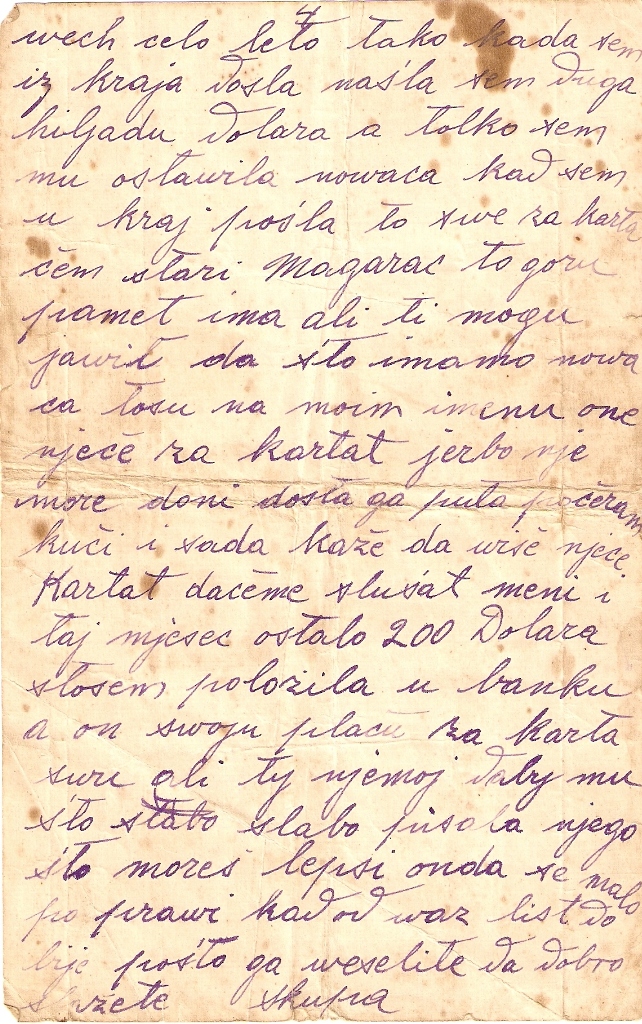 4
wech celo leto tako kada sem
iz kraja došla našla sem duga
hiljadu dolara a tolko sem
mu ostawila nowaca kad sem
u kraj pošla to swe za karta
čem stari Magarac to goru
pamet ima ali ti mogu
jawit da što imamo nowa
ca tosu na moim imenu one
nječe za kartat jerbo nje
more doni dosta ga puta počeram
kuči i sada kaže da wise nječe
Kartat dačeme slušat meni i
taj mjesec ostalo 200 Dolara
stosem položila u banku
a on swoju plaču za karta
swu ali ty njemoj daby mu
što slabo pisala njego
što moreš lepsi onda se malo
po prawi kad od waz list do
bije pošto ga weselite da dobro
skupa